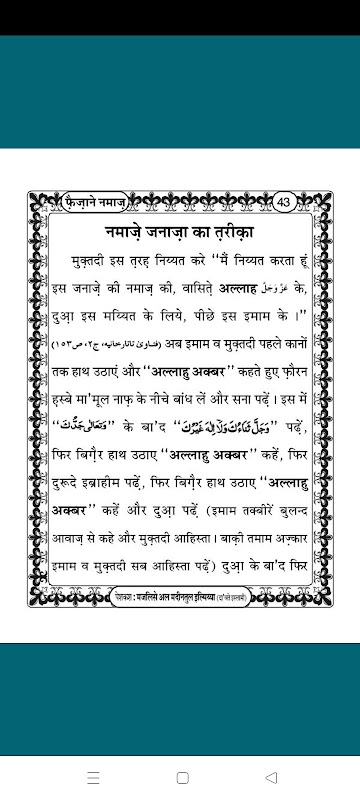 फ़ैज़ाने नमाज़
43
नमाज़े जनाज़ा का त़रीक़ा
मुक़्तदी इस त़रह़ निय्यत करे “मैं निय्यत करता हूं
इस जनाज़े की नमाज़ की, वासित़े अल्लाह عَزَّوَجَلَّ के,
दुआ़ इस मय्यित के लिये, पीछे इस इमाम के ।”
(فتاویٰ تاتارخانیہ، ج۲، ص۱۵۳) अब इमाम व मुक़्तदी पहले कानों
तक हाथ उठाएं और “अल्लाहु अक्बर” कहते हुए फ़ौरन
ह़स्बे मा'मूल नाफ़ के नीचे बांध लें और सना पढ़ें । इस में
“وَتَعَالٰی جَدُّكَ” के बा'द “وَجَلَّ ثَنَاءُكَ وَلَآ اِلٰهَ غَیْرُكَ” पढ़ें,
फिर बिग़ैर हाथ उठाए “अल्लाहु अक्बर” कहें, फिर
दुरूदे इब्राहीम पढ़ें, फिर बिग़ैर हाथ उठाए “अल्लाहु
अक्बर” कहें और दुआ़ पढ़ें (इमाम तक्बीरें बुलन्द
आवाज़ से कहे और मुक़्तदी आहिस्ता । बाक़ी तमाम अज़्कार
इमाम व मुक़्तदी सब आहिस्ता पढ़ें) दुआ़ के बा'द फिर
पेशकश : मजलिसे अल मदीनतुल इल्मिय्या (दा'वते इस्लामी)